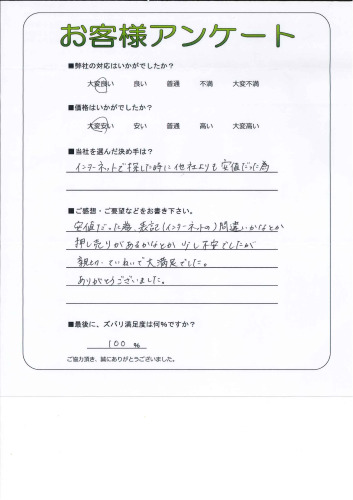 お客様アンケート
■弊社の対応はいかがでしたか？
大変良い 良い 普通 不満 大変不満
■価格はいかがでしたか？
大変安い 安い 普通 高い 大変高い
■当社を選んだ決め手は？
インターネットで探した時に他社よりも安値だった為
■ご感想・ご要望などをお書き下さい。
安値だった為、表記(インターネットの)間違いかなとか
押し売りがあるかなとか少し不安でしたが
親切、ていねいで大満足でした。
ありがとうございました。
■最後に、ズバリ満足度は何%ですか？
100 %
ご協力頂き、誠にありがとうございました。